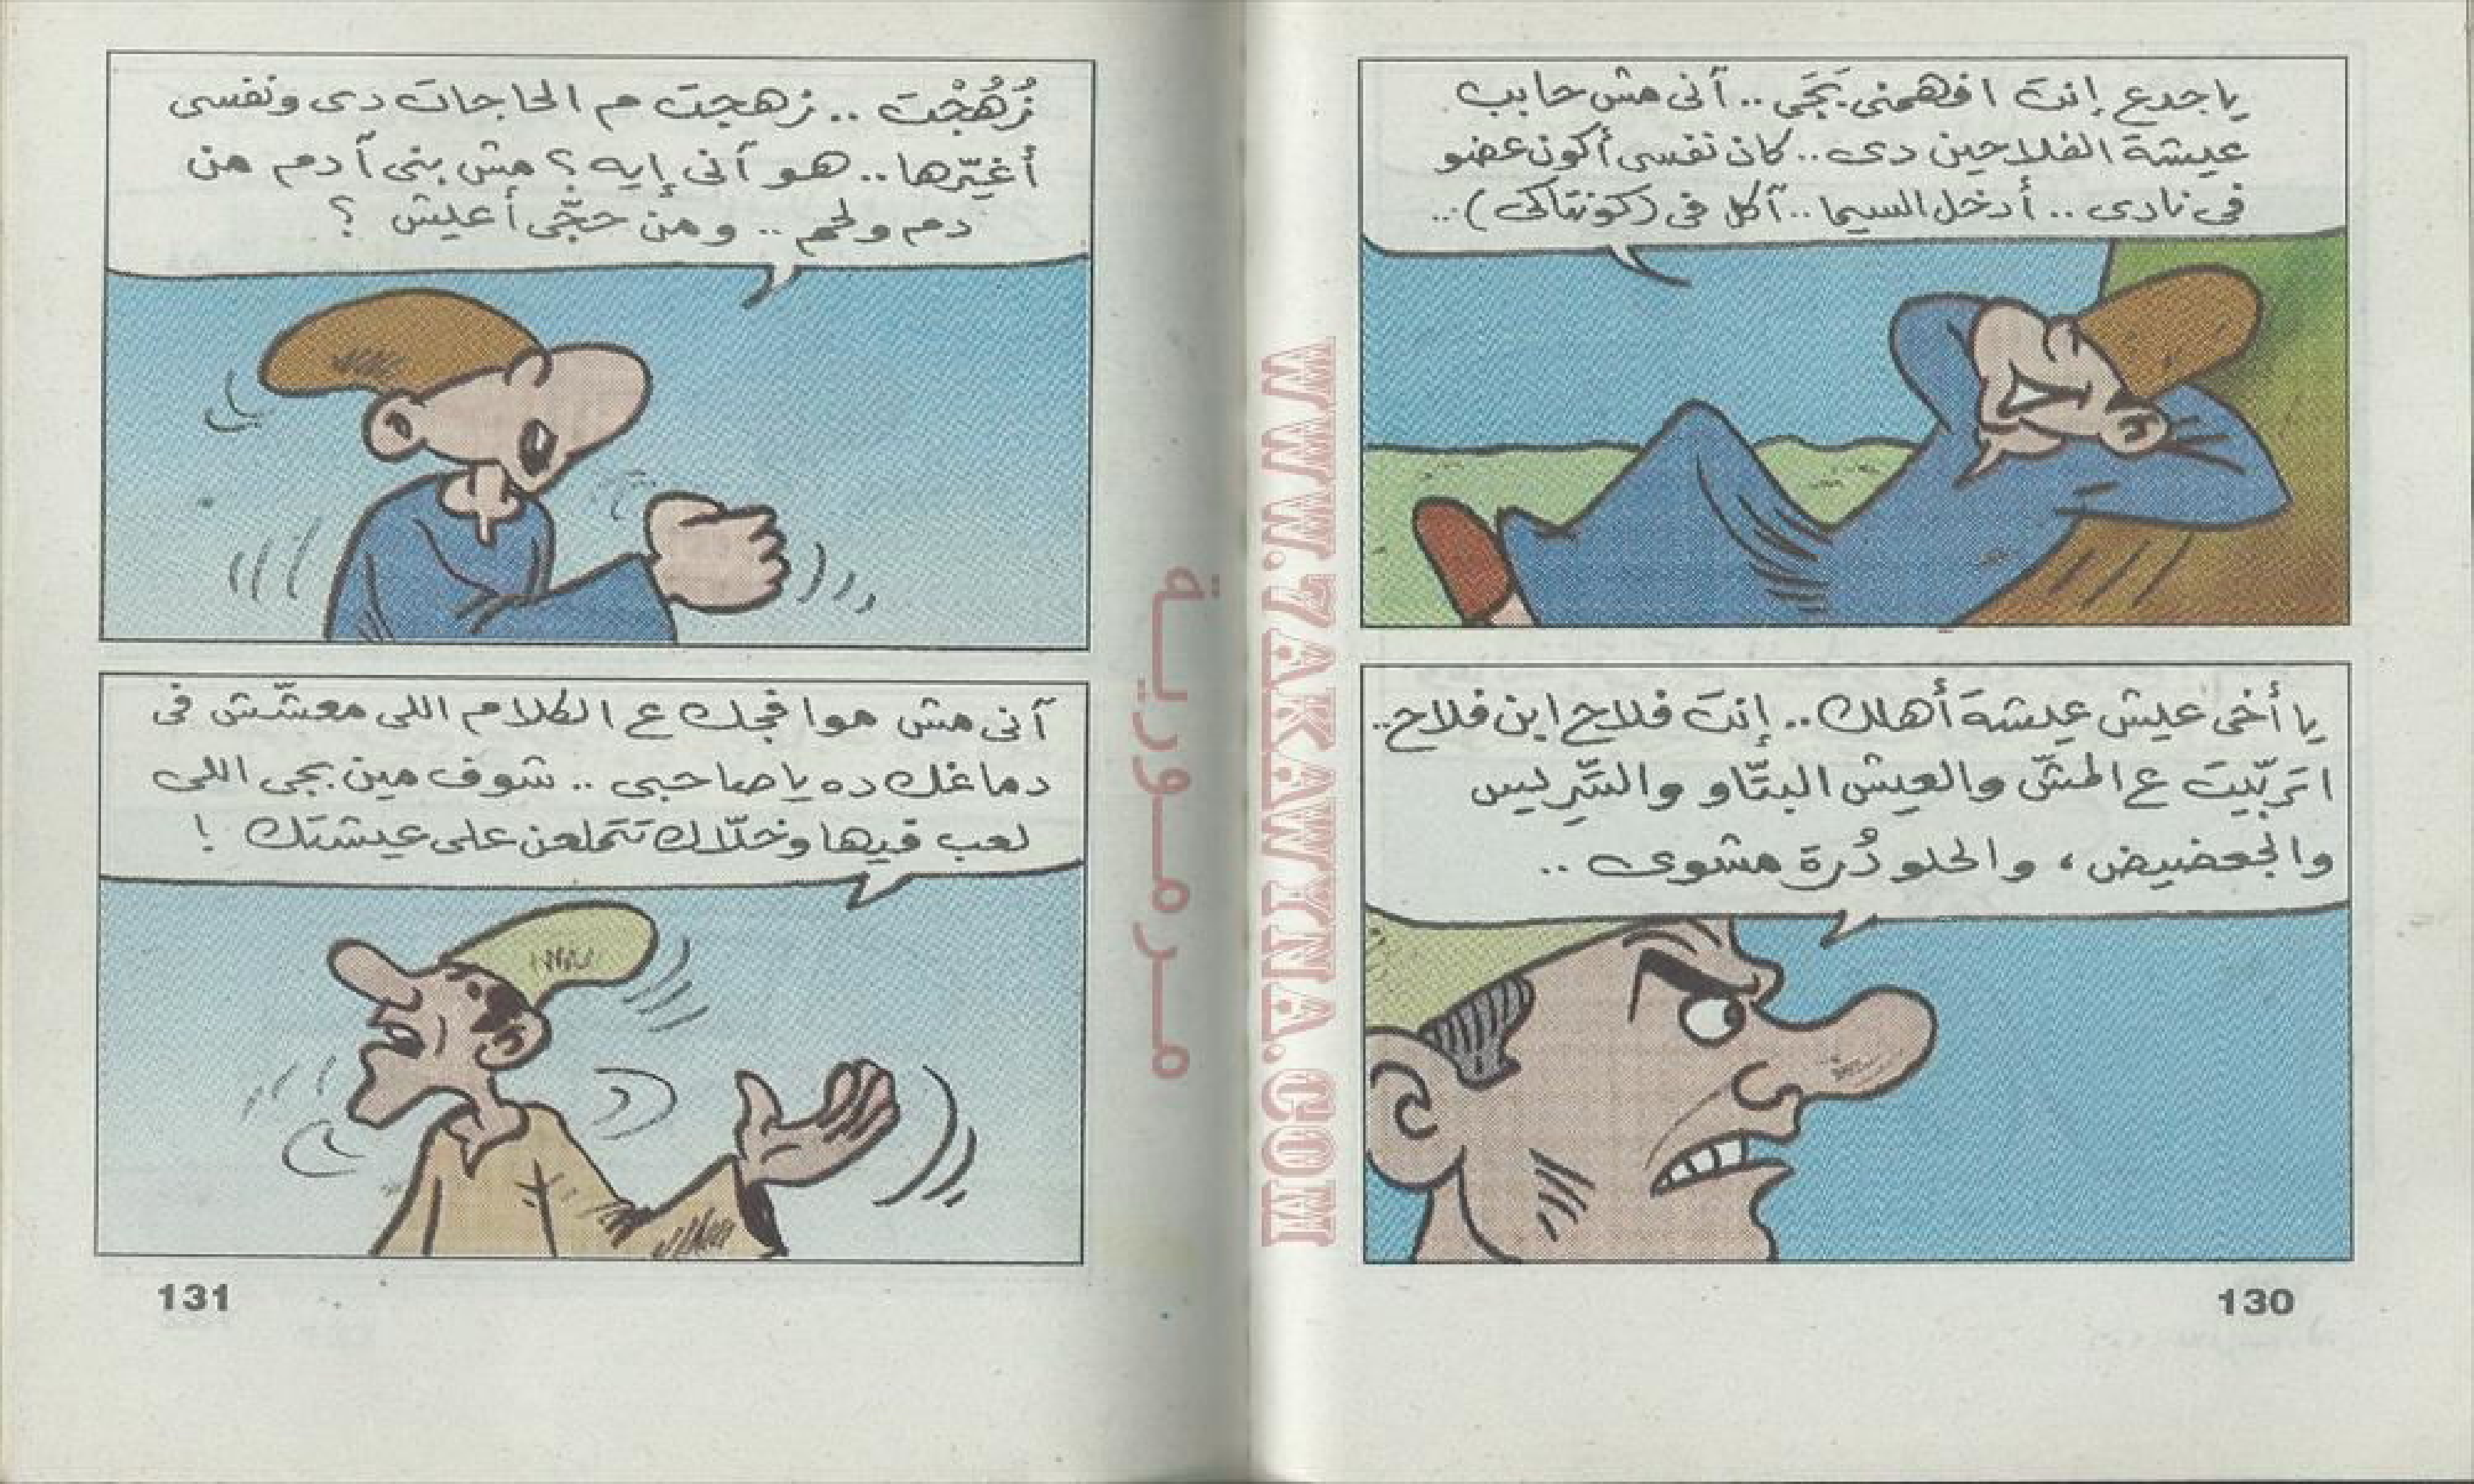 يا جدع إنت افهمنى بَجَى .. آنى مش حابب
عيشة الفلاحين دى .. كان نفسى أكون عضو
فى نادى .. أدخل السيما .. آكل فى (كونتاكى) ..
يا أخى عيش عيشة أهلك .. إنت فلاح ابن فلاح ..
اتربّيت ع المشّ والعيش البتّاو والسِّريس
والجعضيض، والحلو دُرة مشوى ..
130
زُهُجْت .. زهجت م الحاجات دى ونفسى
أغيّرها .. هو آنى إيه ؟ مش بنى آدم من
دم ولحم .. ومن حجّى أعليش ؟
آنى مش موافجك ع الكلام اللى معشّش فى
دماغك ده يا صاحبى .. شوف مين بجى اللى
لعب فيها وخلّاك تتملعن على عيشتك !
131
مرمورية
WWW.7AKAWYNA.COM